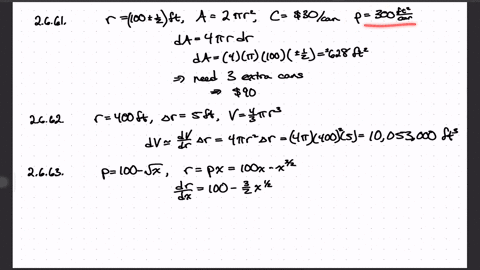 2.6.61. r = (100 ± ½) ft, A = 2πr², C = $30/can p = 300 ft²/can
dA = 4πr dr
dA = (4)(π)(100)(±½) = ±628 ft²
⇒ need 3 extra cans
⇒ $90
2.6.62 r = 400 ft, Δr = 5 ft, V = 4/3 πr³
dV ≈ dV/dr Δr = 4πr² Δr = (4π)(400)²(5) = 10,053,000 ft³
2.6.63. p = 100 - √x, r = px = 100x - x^(3/2)
dr/dx = 100 - 3/2 x^(1/2)